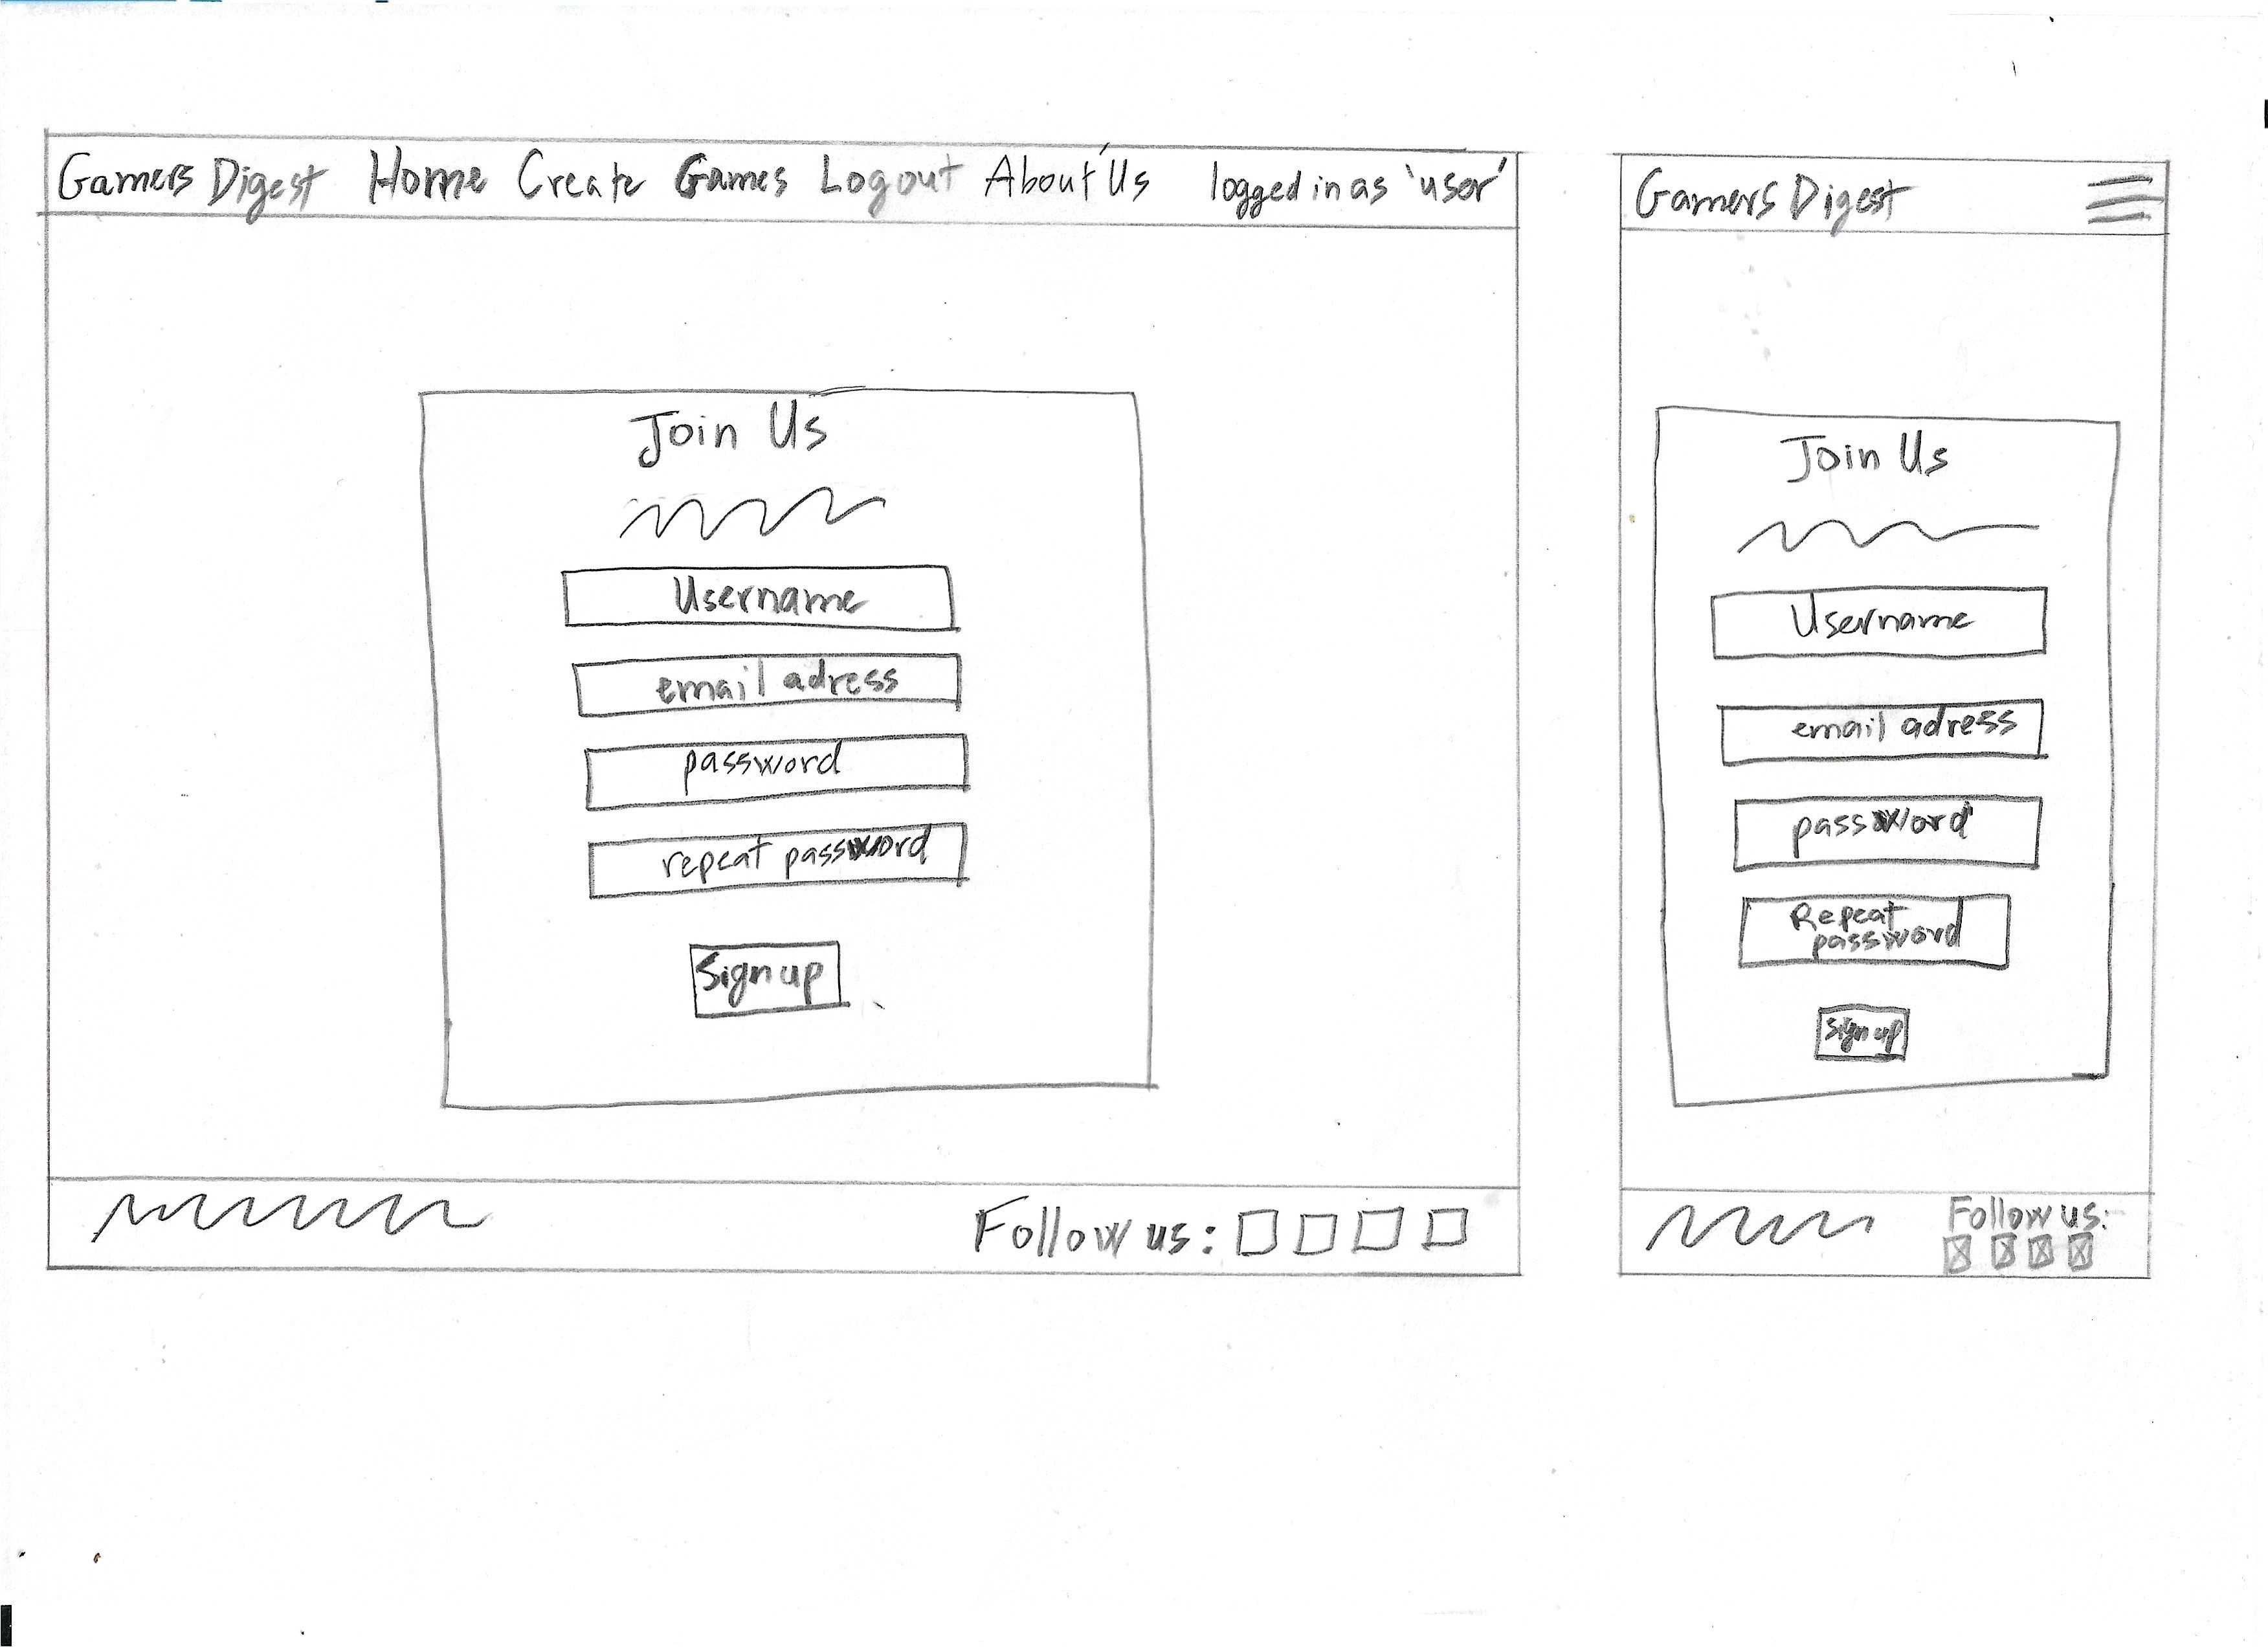 Gamers Digest Home Create Games Logout About Us logged in as 'user'
Join Us
Username
email adress
password
repeat password
Sign up
Follow us:
Gamers Digest
Join Us
Username
email adress
password
Repeat
password
Sign up
Follow us: